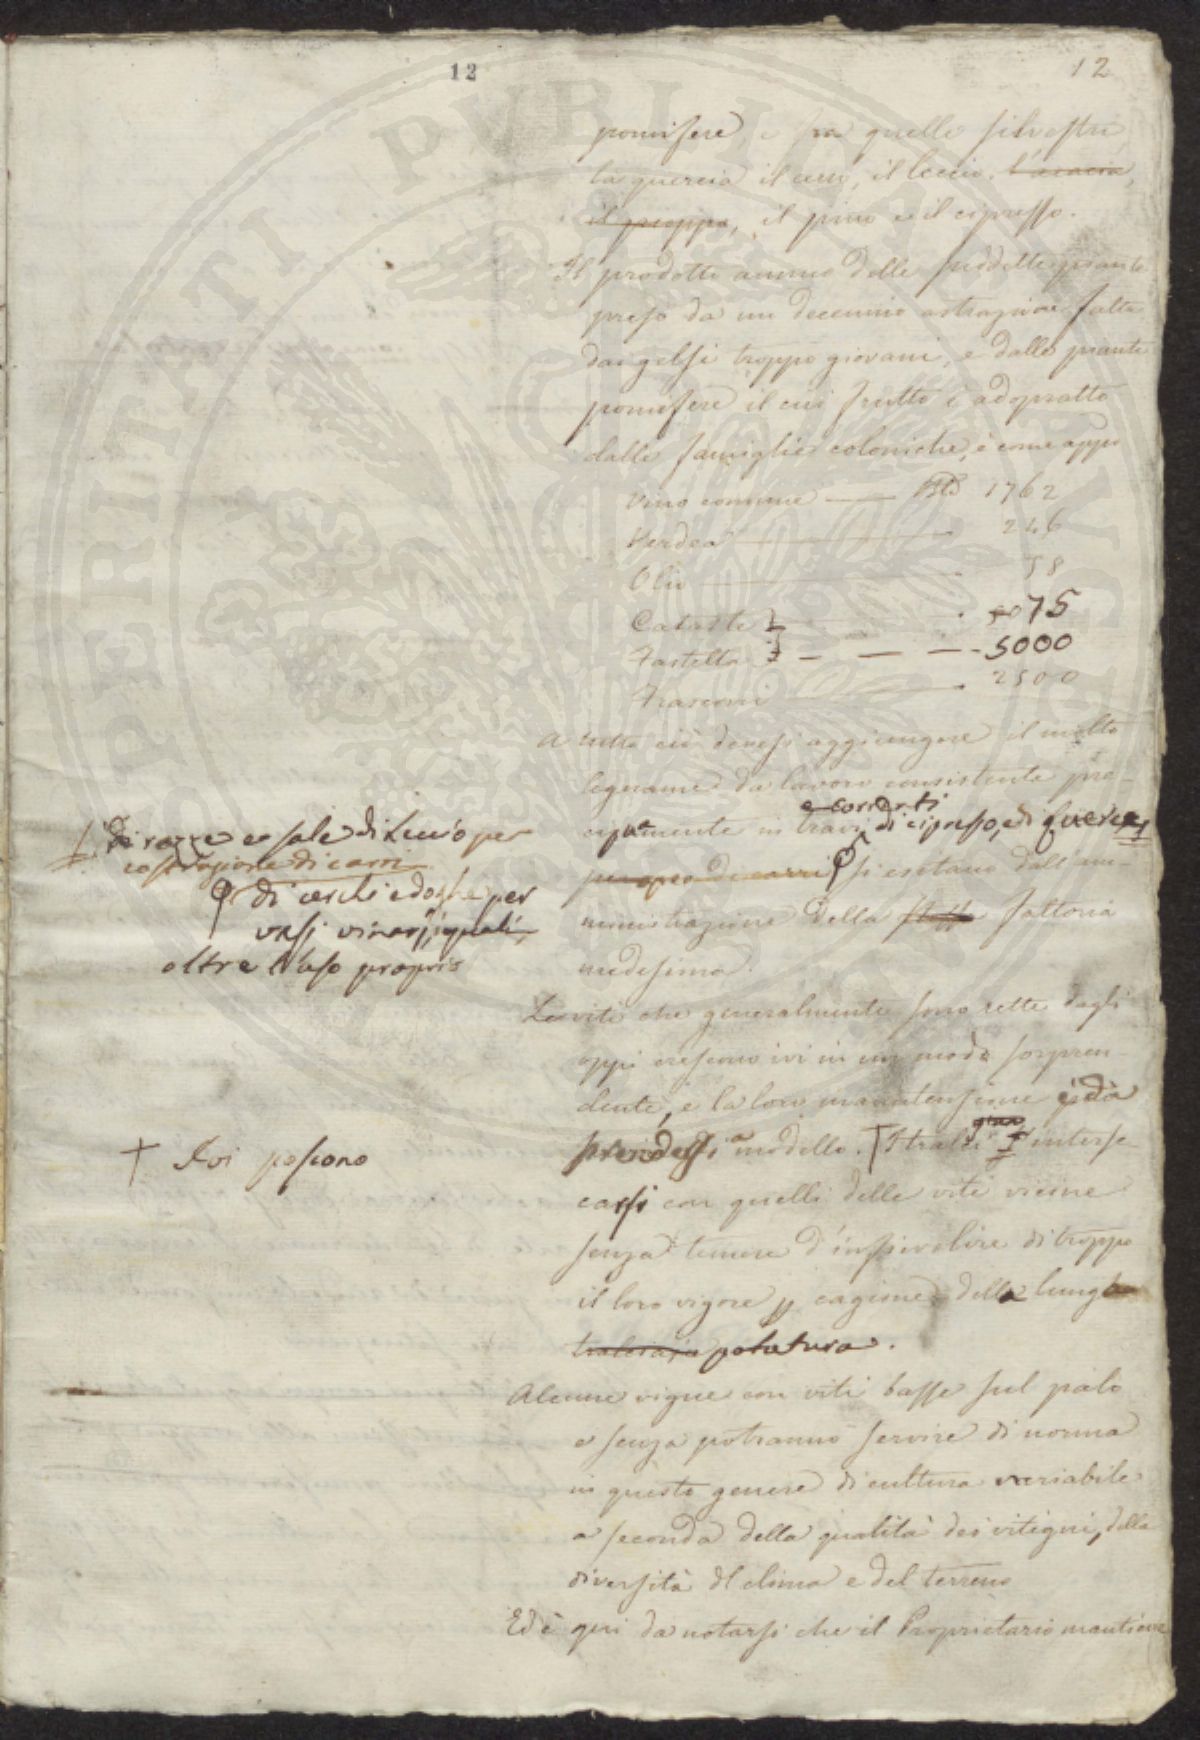 12
12
pomifere, e fra quelle silvestri
la quercia il cerro, il leccio, l'acacia,
il pioppo, il pino e il cipresso.
Il prodotto annuo delle suddette piante
preso da un decennio astrazione fatta
dai gelsi troppo giovani, e dalle piante
pomifere il cui frutto è adoprato
dalle famiglie coloniche, è come appo
Vino comune 1762
Verdea 246
Olio 58
Cataste 75
Fastella 5000
Frasconi 2500
A tutto ciò devesi aggiungere il molto
legname da lavoro consistente pre-
e correnti
cipuamente in travi di cipresso, e di querce
per uso di carri si esitano dall'am-
ministrazione della fattoria
medesima.
Di razze e sale di Leccio per
costruzione di carri
di cerchi e doghe per
vasi vinarj, i quali,
oltre l'uso proprio
Le viti che generalmente sono rette dagli
oppi crescono ivi in un modo sorpren-
dente, e la loro manutensione è da
prendersi a modello. † I tralci interse-
† Ivi possono
carsi con quelli delle viti vicine
senza temere d'infievolire di troppo
il loro vigore p cagione della lunga
tralciaja potatura.
Alcune vigne con viti basse sul palo
e senza potranno servire di norma
in questo genere di cultura variabile
a seconda della qualità dei vitigni, della
diversità del clima e del terreno
Ed è qui da notarsi che il Proprietario mantiene
PERITATI PUBLICAE